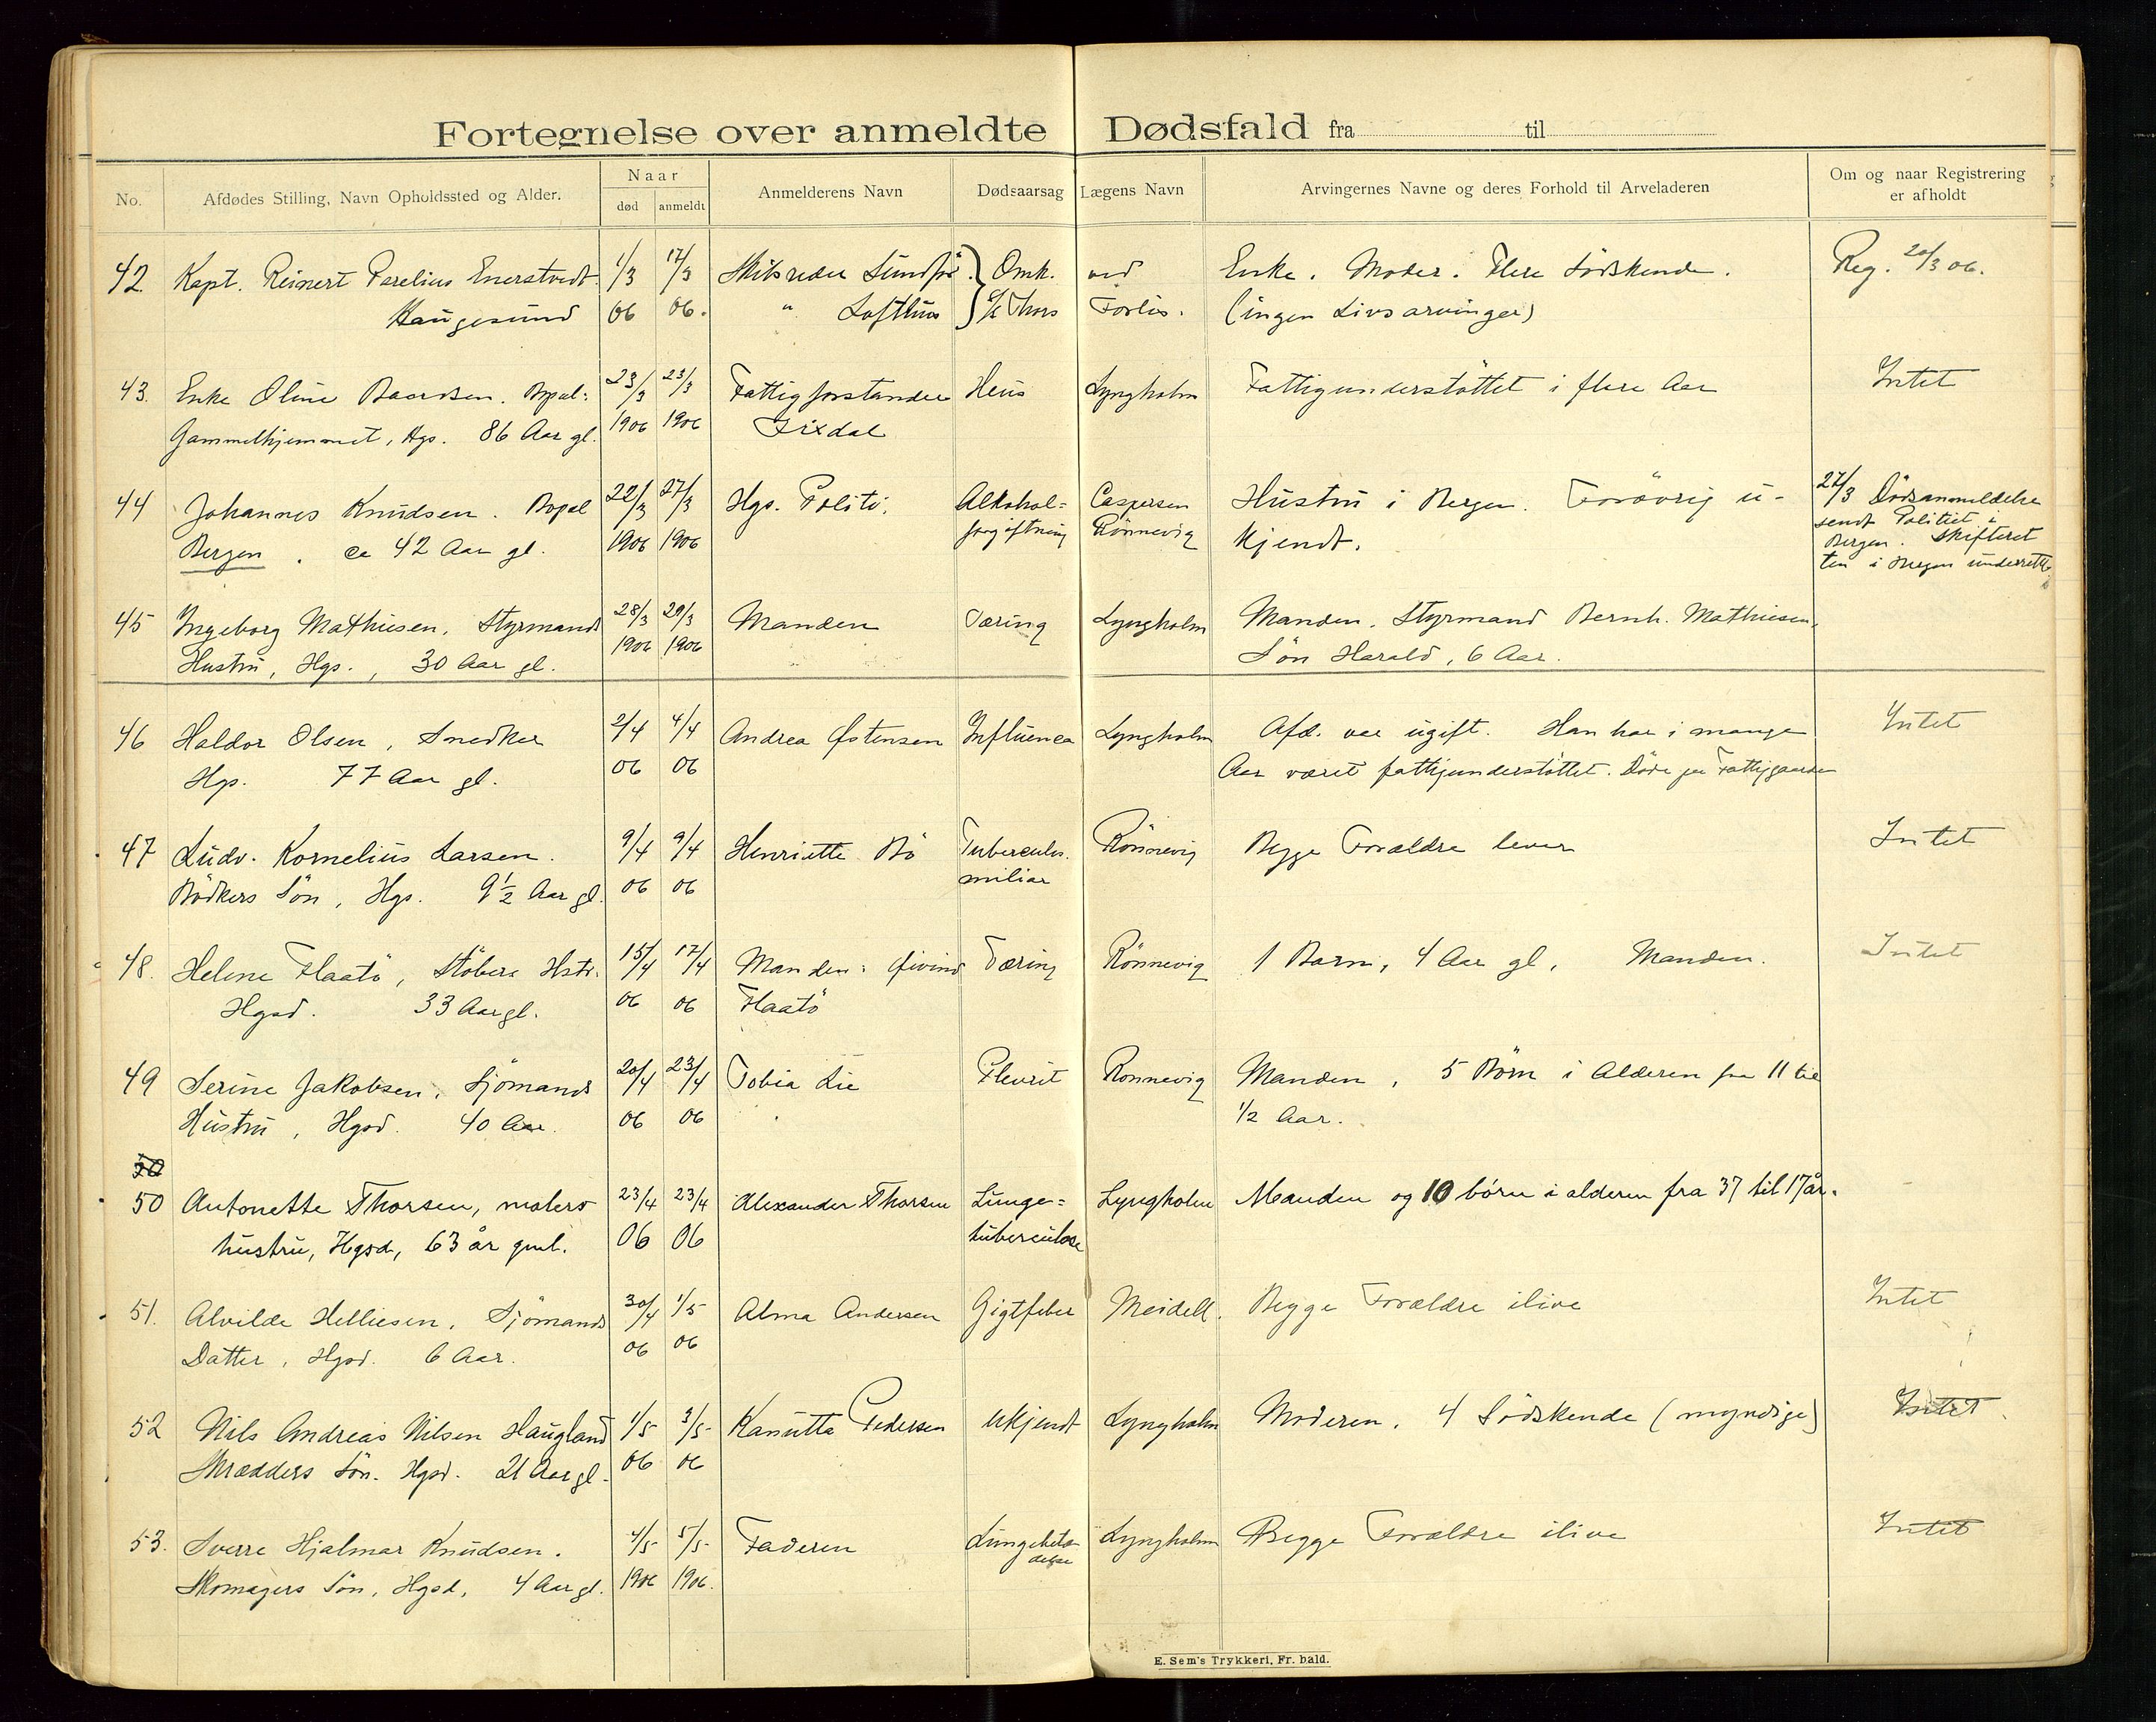 Fortegnelse over anmeldte Dødsfald fra til
No.
Afdødes Stilling, Navn Opholdssted og Alder.
Naar
død
anmeldt
Anmelderens Navn
Dødsaarsag
Lægens Navn
Arvingernes Navne og deres Forhold til Arveladeren
Om og naar Registrering
er afholdt
42 Kapt. Reinert Enerstvedt 1/3 17/3 Skibsreder Omk. ved Enke. Moder. Flere Södskende. Reg. 20/3 06.
Haugesund 06 06. " Lofthus Thors Forlis. (ingen Livsarvinger)
43. Enke Oline Baardsen. Bopæl: 23/3 23/3 Fattigforstander Lyngholm Fattigunderstöttet i flere Aar Intet
Gammelhjemmet, Hgs. 86 Aar gl. 1906 1906 Fixdal
44 Johannes Knudsen. Bopæl 22/3 27/3 Hgs. Politi. Alkohol= Caspersen Hustru i Bergen. Forövrig u- 27/3 Dödsanmeldelse
Bergen. ca 42 Aar gl. 1906 1906 forgiftning Rönnevig kjendt. sendt Politiet i
Bergen. Skifteret
ten i Bergen underrett.
45 Ingeborg Mathiesen, Styrmands 28/3 29/3 Manden Tæring Lyngholm Manden. Styrmand Bernh. Mathiesen.
Hustru, Hgs., 30 Aar gl. 1906 1906 Sön Harald, 6 Aar.
46 Haldor Olsen, Snedker 2/4 4/4 Andrea Østensen Influenca Lyngholm Afd. var ugift. Han har i mange Intet
Hgs. 77 Aar gl. 06 06 Aar været fattigunderstöttet. Döde paa Fattiggaarden
47 Ludv. Kornelius Larsen. 9/4 9/4 Henriette Bö Tuberculos. Rönnevig Begge Forældre lever Intet
Bödkers Sön, Hgs. 9½ Aar gl. 06 06 miliar
48. Helene Flaatö, Stöbers Hstr. 15/4 17/4 Manden: Øivind Tæring Rönnevig 1 Barn, 4 Aar gl, Manden. Intet
Hgsd. 33 Aar gl. 06 06 Flaatö
49 Serine Jakobsen, Sjömands 20/4 23/4 Tobia Lie Plevrit Rönnevig Manden, 5 Börn i Alderen fra 11 til
Hustru, Hgsd. 40 Aar. 06 06 1/2 Aar.
50
50 Antonette Thorsen, malers 23/4 23/4 Alexander Thorsen Lunge= Lyngholm Manden og 10 börn i alderen fra 37 til 17 år.
hustru, Hgsd, 63 år gml. 06 06 tuberculose
51. Alvilde Helliesen, Sjömands 30/4 1/5 Alma Andersen Gigtfeber Meidell. Begge Forældre ilive Intet
Datter, Hgsd. 6 Aar. 06 06
52 Nils Andreas Nilsen Haugland 1/5 3/5 Kanutta Pedersen Ukjendt Lyngholm Moderen. 4 Södskende (myndige) Intet
Skrædders Sön. Hgsd. 21 Aar gl. 06 06
53. Sverre Hjalmar Knudsen. 4/5 5/5 Faderen Lungebetæn Lyngholm Begge Forældre ilive Intet
Skomagers Sön, Hgsd, 4 Aar gl. 1906 1906. delse
E. Sem's Trykkeri, Fr. hald.